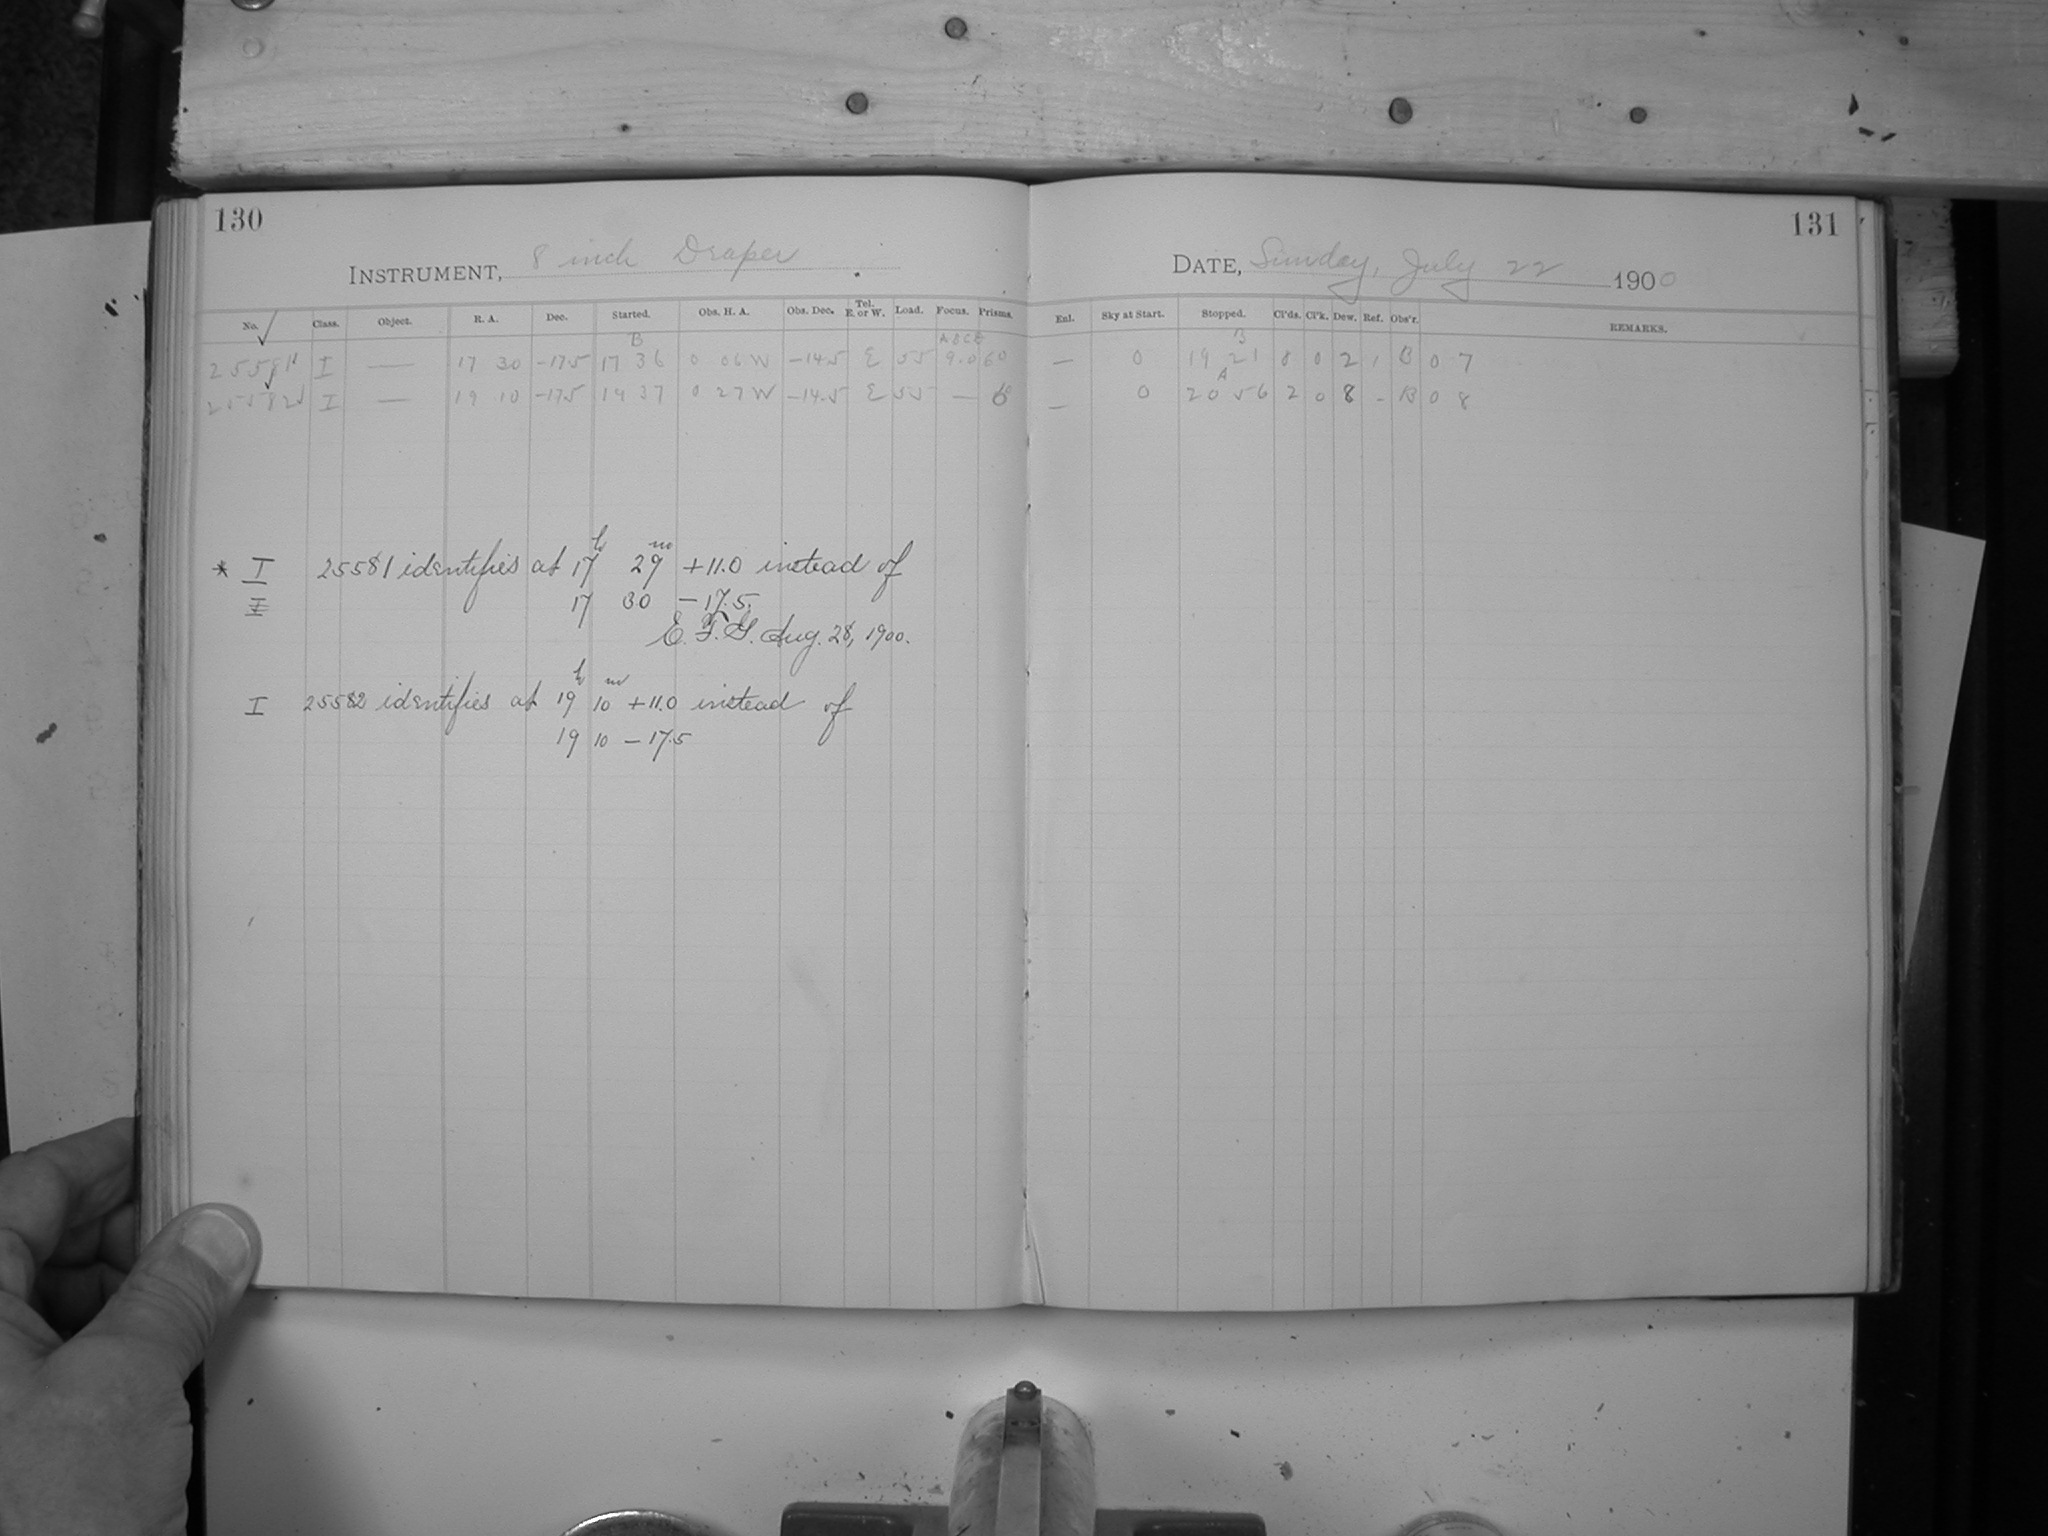 130
131
INSTRUMENT, 8 inch Draper
DATE, Sunday, July 22 1900
No. Class. Object. R. A. Dec. Started. Obs. H. A. Obs. Dec. Tel. E. or W. Load. Focus. Prisms. Enl. Sky at Start. Stopped. Cl'ds. Cl'k. Dew. Ref. Obs'r. REMARKS.
B ABCE B
25581 I — 17 30 -17.5 17 36 0 06 W -14.5 E 55 9.0 60 — 0 19 21 0 0 2 1 B 0 7
A
25582 I — 19 10 -17.5 19 37 0 27 W -14.5 E 55 — — 0 20 56 2 0 8 - B 0 8
* I 25581 identifies at 17h 29m +11.0 instead of
I 17 30 -17.5.
E. F. G. Aug. 28, 1900.
I 25582 identifies at 19h 10m +11.0 instead of
19 10 -17.5